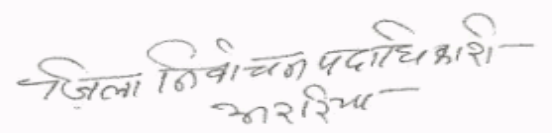 जिला निर्वाचन पदाधिकारी
अररिया